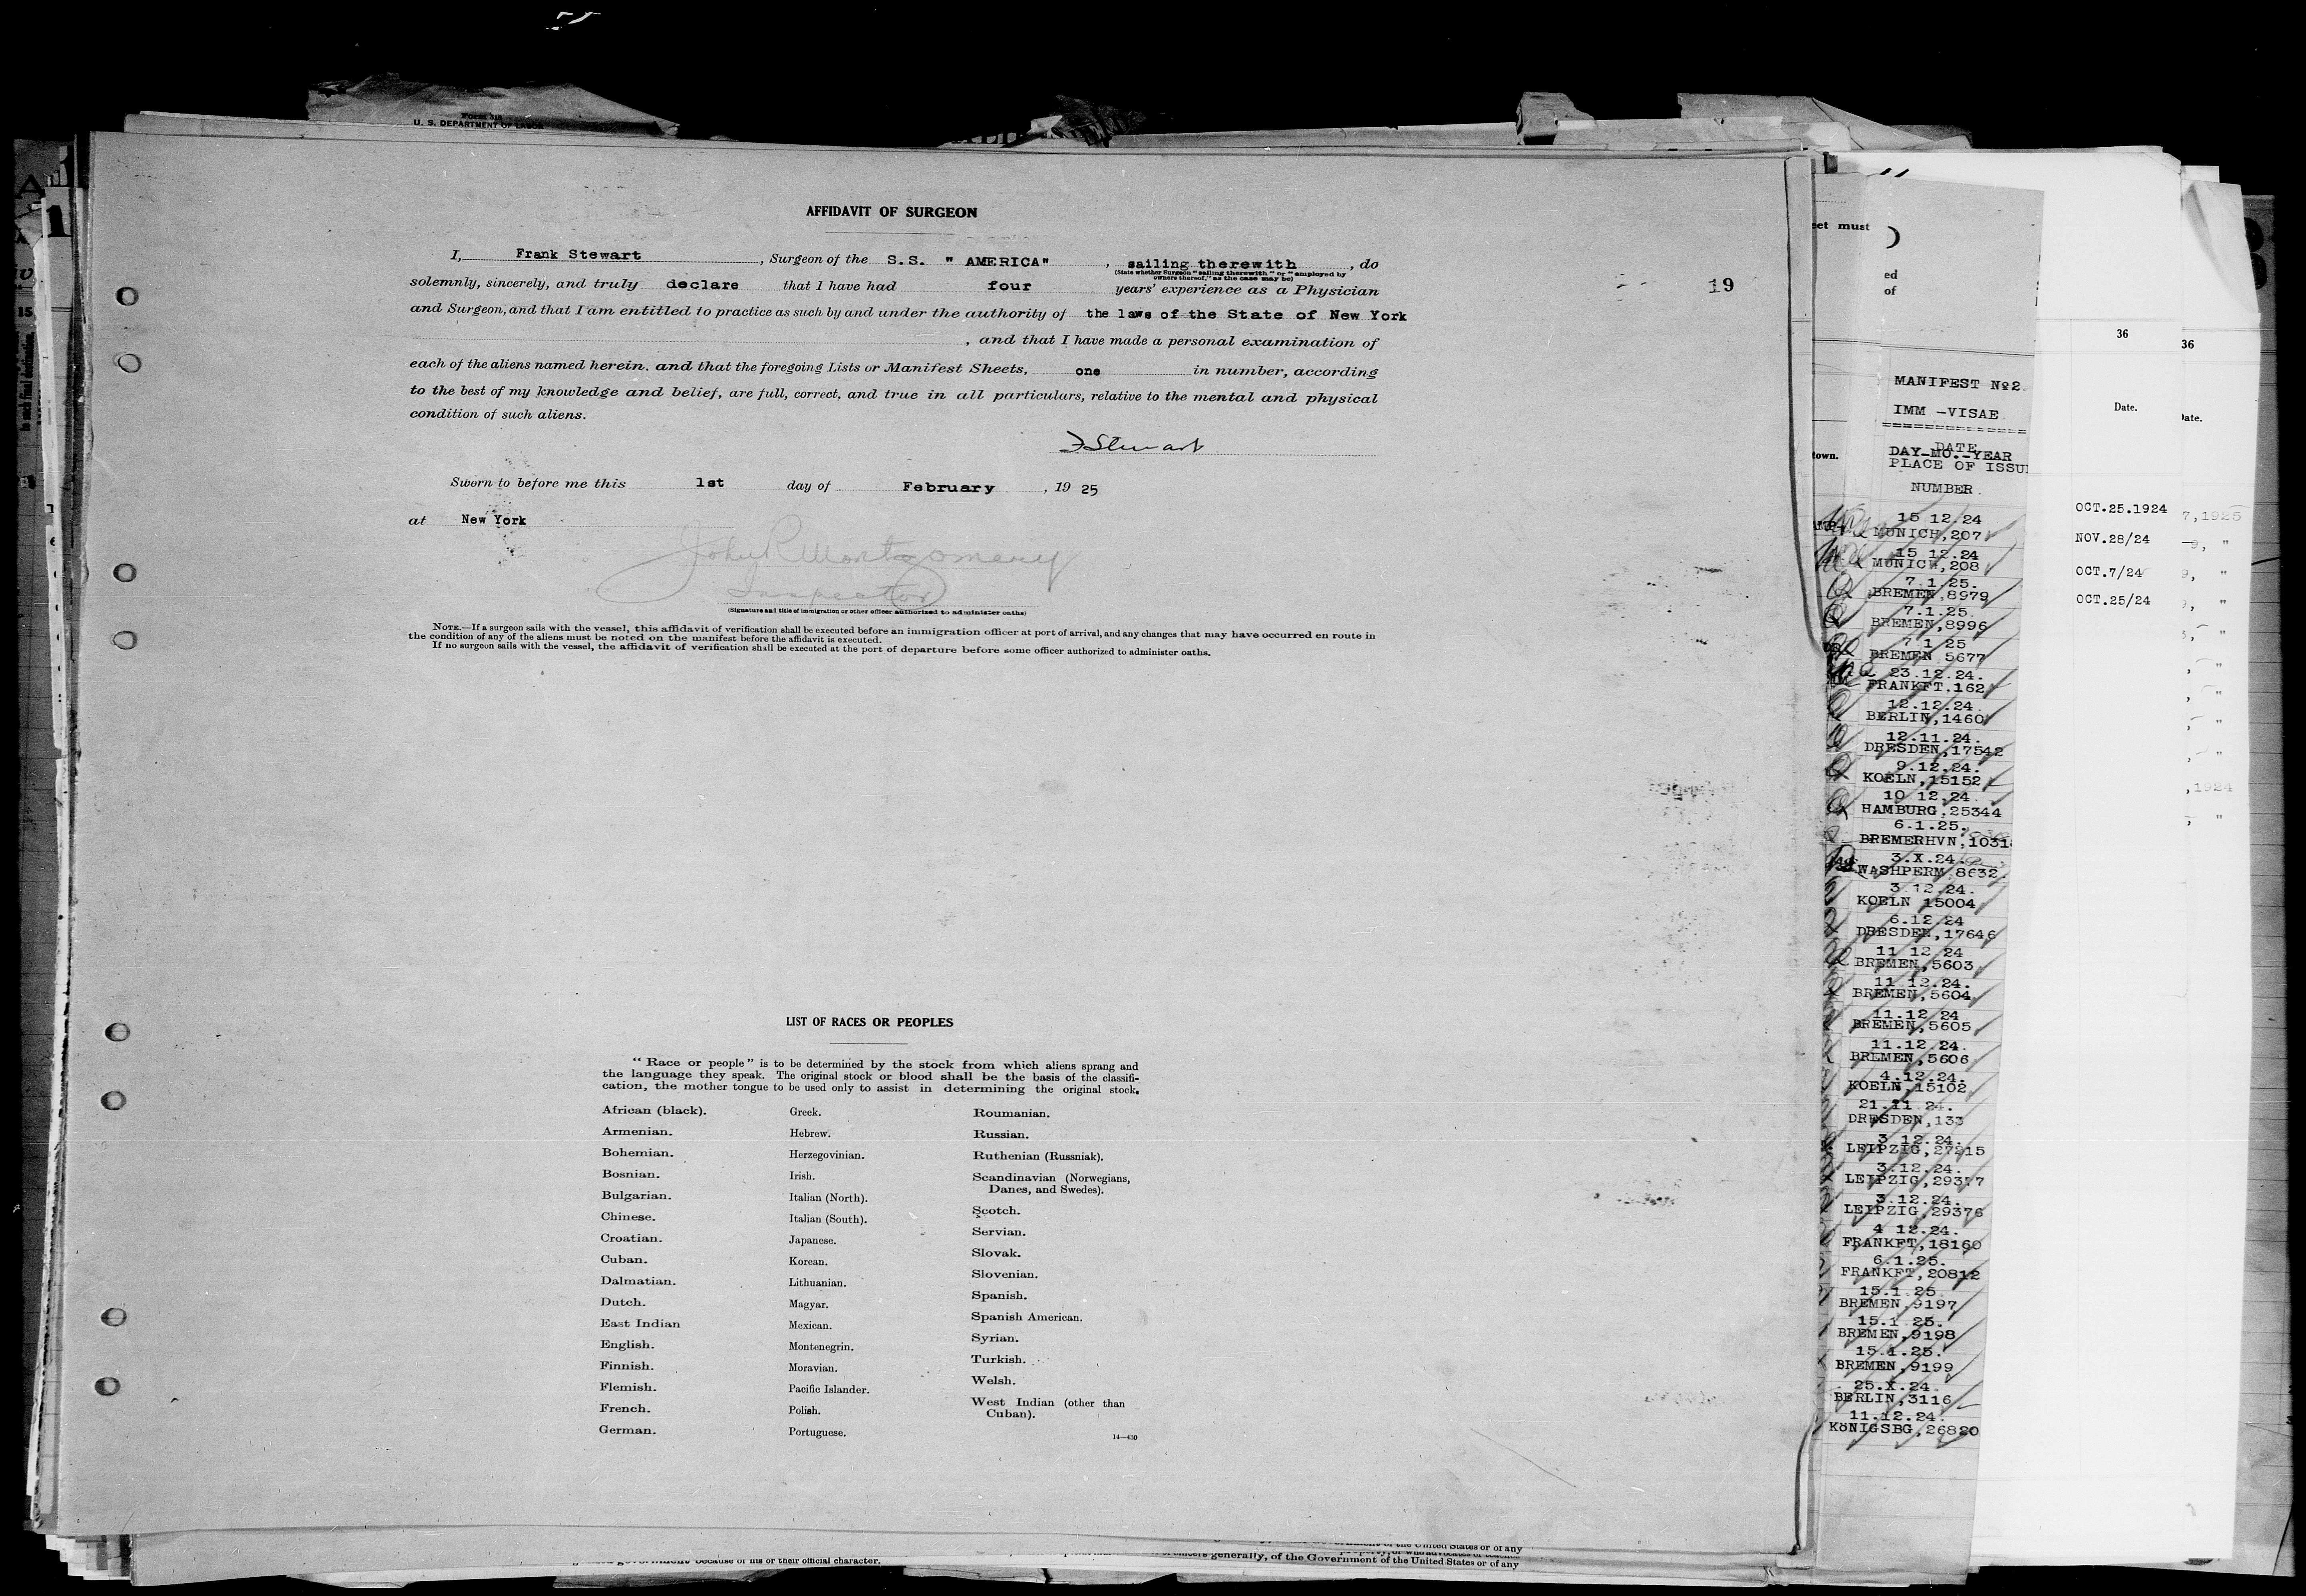 Form 419
U. S. DEPARTMENT OF LABOR
AFFIDAVIT OF SURGEON
I, Frank Stewart, Surgeon of the S.S. " AMERICA", sailing therewith, do
(State whether Surgeon "sailing therewith" or "employed by
owners thereof," as the case may be)
solemnly, sincerely, and truly declare that I have had four years' experience as a Physician
19
and Surgeon, and that I am entitled to practice as such by and under the authority of the laws of the State of New York
, and that I have made a personal examination of
each of the aliens named herein. and that the foregoing Lists or Manifest Sheets, one in number, according
to the best of my knowledge and belief, are full, correct, and true in all particulars, relative to the mental and physical
condition of such aliens.
F Stewart
Sworn to before me this 1st day of February, 19 25
at New York
John R Montgomery
Inspector
(Signature and title of immigration or other officer authorized to administer oaths)
NOTE.—If a surgeon sails with the vessel, this affidavit of verification shall be executed before an immigration officer at port of arrival, and any changes that may have occurred en route in
the condition of any of the aliens must be noted on the manifest before the affidavit is executed.
If no surgeon sails with the vessel, the affidavit of verification shall be executed at the port of departure before some officer authorized to administer oaths.
LIST OF RACES OR PEOPLES
"Race or people" is to be determined by the stock from which aliens sprang and
the language they speak. The original stock or blood shall be the basis of the classifi-
cation, the mother tongue to be used only to assist in determining the original stock.
African (black).
Armenian.
Bohemian.
Bosnian.
Bulgarian.
Chinese.
Croatian.
Cuban.
Dalmatian.
Dutch.
East Indian
English.
Finnish.
Flemish.
French.
German.
Greek.
Hebrew.
Herzegovinian.
Irish.
Italian (North).
Italian (South).
Japanese.
Korean.
Lithuanian.
Magyar.
Mexican.
Montenegrin.
Moravian.
Pacific Islander.
Polish.
Portuguese.
Roumanian.
Russian.
Ruthenian (Russniak).
Scandinavian (Norwegians,
Danes, and Swedes).
Scotch.
Servian.
Slovak.
Slovenian.
Spanish.
Spanish American.
Syrian.
Turkish.
Welsh.
West Indian (other than
Cuban).
14—430
because of his or their official character.
officers generally, of the Government of the United States or of any
must
ed
of
town.
MANIFEST No2
IMM -VISAE
DATE
DAY-MO.-YEAR
PLACE OF ISSU
NUMBER
15 12.24
MUNICH,207
15 12.24
MUNICH,208
7.1.25.
BREMEN,8979
7.1.25.
BREMEN,8996
7 1 25
BREMEN 5677
23.12.24.
FRANKFT.162
12.12.24.
BERLIN,1460
12.11.24.
DRESDEN,17542
9.12.24.
KOELN,15152
10 12.24
HAMBURG,25344
6.1.25.
BREMERHVN,1031
3.X.24.
WASHPERM,8632.
3.12.24.
KOELN 15004
6.12.24
DRESDEN,17646
11 12 24
BREMEN,5603
11.12.24.
BREMEN,5604
11.12.24
BREMEN,5605
11.12.24.
BREMEN,5606
4.12.24.
KOELN,15102
21.11 24.
DRESDEN,133
3 12.24.
LEIPZIG,27215
3.12.24.
LEIPZIG,29377
3.12.24.
LEIPZIG,29376
4 12.24.
FRANKFT,18160
6.1.25.
FRANKFT,20812
15.1.25
BREMEN,9197
15.1 25.
BREMEN,9198
15.1.25.
BREMEN,9199
25.X.24.
BERLIN,3116
11.12.24.
KÖNIGSBG,26820
36
Date.
OCT.25.1924
NOV.28/24
OCT.7/24
OCT.25/24
36
Date.
7,1925
9, "
9, "
, "
, "
, "
, "
, "
, "
,1924
, "